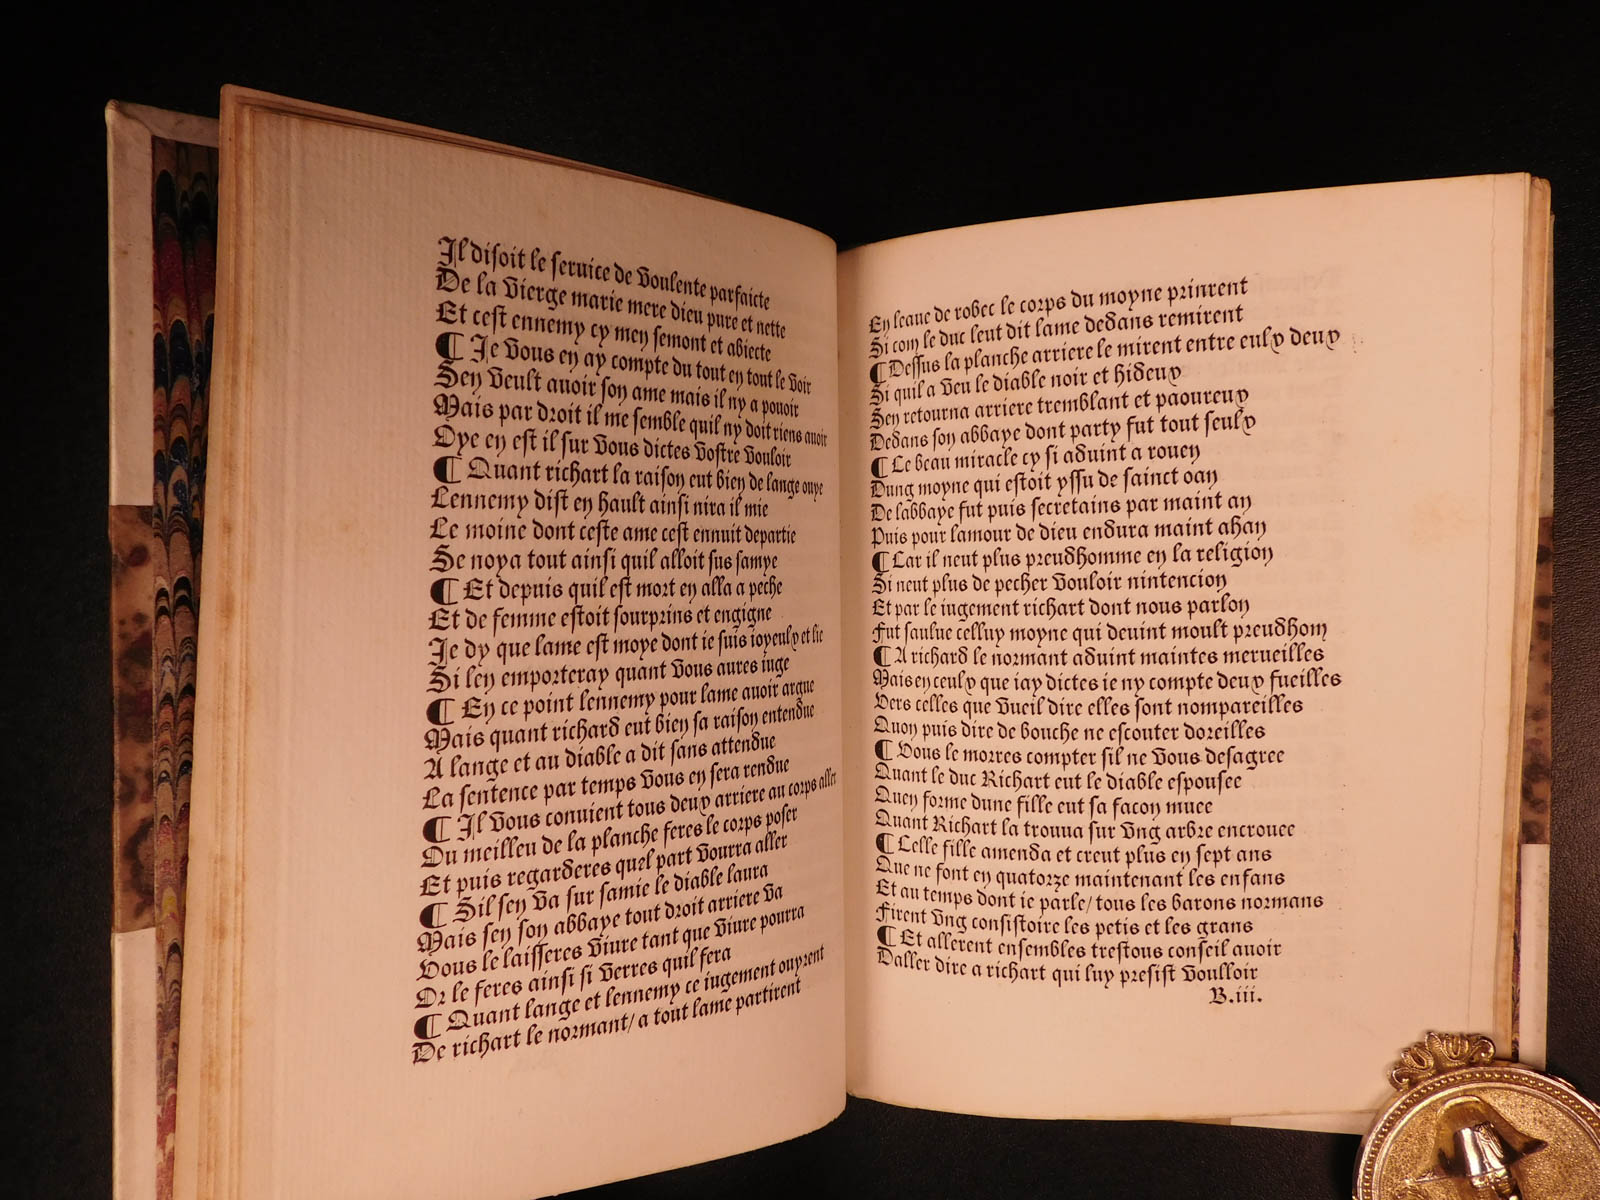 Il disoit le seruice de voulente parfaicte
De la vierge marie mere dieu pure et nette
Et cest ennemy cy men semont et abiecte
¶ Je vous en ay compte du tout en tout le voir
Sen veult auoir son ame mais il ny a pouoir
Mais par droit il me semble quil ny doit riens auoir
Oye en est il sur vous dictes vostre vouloir
¶ Quant richart la raison eut bien de lange ouye
Lennemy dist en hault ainsi nira il mie
Le moine dont ceste ame cest ennuit departie
Se noya tout ainsi quil alloit sus samye
¶ Et depuis quil est mort en alla a peche
Et de femme estoit sourprins et engigne
Je dy que lame est moye dont ie suis ioyeulx et lie
Si len emporteray quant vous aures iuge
¶ En ce point lennemy pour lame auoir argue
Mais quant richard eut bien sa raison entendue
A lange et au diable a dit sans attendue
La sentence par temps vous en sera rendue
¶ Il vous conuient tous deux arriere au corps aller
Du meilleu de la planche feres le corps poser
Et puis regarderes quel part vourra aller
¶ Sil sen va sur samie le diable laura
Mais sen son abbaye tout droit arriere va
Vous le laisseres viure tant que viure pourra
Or le feres ainsi si verres quil fera
¶ Quant lange et lennemy ce iugement ouyrent
De richart le normant/ a tout lame partirent
En leaue de robec le corps du moyne prinrent
Si com le duc leut dit lame dedans remirent
¶ Dessus la planche arriere le mirent entre eulx deux
Si quil a veu le diable noir et hideux
Sen retourna arriere tremblant et paoureux
Dedans son abbaye dont party fut tout seulx
¶ Le beau miracle cy si aduint a rouen
Dung moyne qui estoit yssu de sainct oan
De labbaye fut puis secretains par maint an
Puis pour lamour de dieu endura maint ahan
¶ Car il neut plus preudhomme en la religion
Si neut plus de pecher vouloir nintencion
Et par le iugement richart dont nous parlon
Fut saulue celluy moyne qui deuint moult preudhom
¶ A richard le normant aduint maintes merueilles
Mais en ceulx que iay dictes ie ny compte deux fueilles
Vers celles que vueil dire elles sont nompareilles
Quon puis dire de bouche ne escouter doreilles
¶ Vous le morres compter sil ne vous desagree
Quant le duc Richart eut le diable espousee
Quen forme dune fille eut sa facon muee
Quant Richart la trouua sur vng arbre encrouee
¶ Celle fille amenda et creut plus en sept ans
Que ne font en quatorze maintenant les enfans
Et au temps dont ie parle/ tous les barons normans
Firent vng consistoire les petis et les grans
¶ Et allerent ensembles trestous conseil auoir
Daller dire a richart qui luy presist voulloir
B.iii.